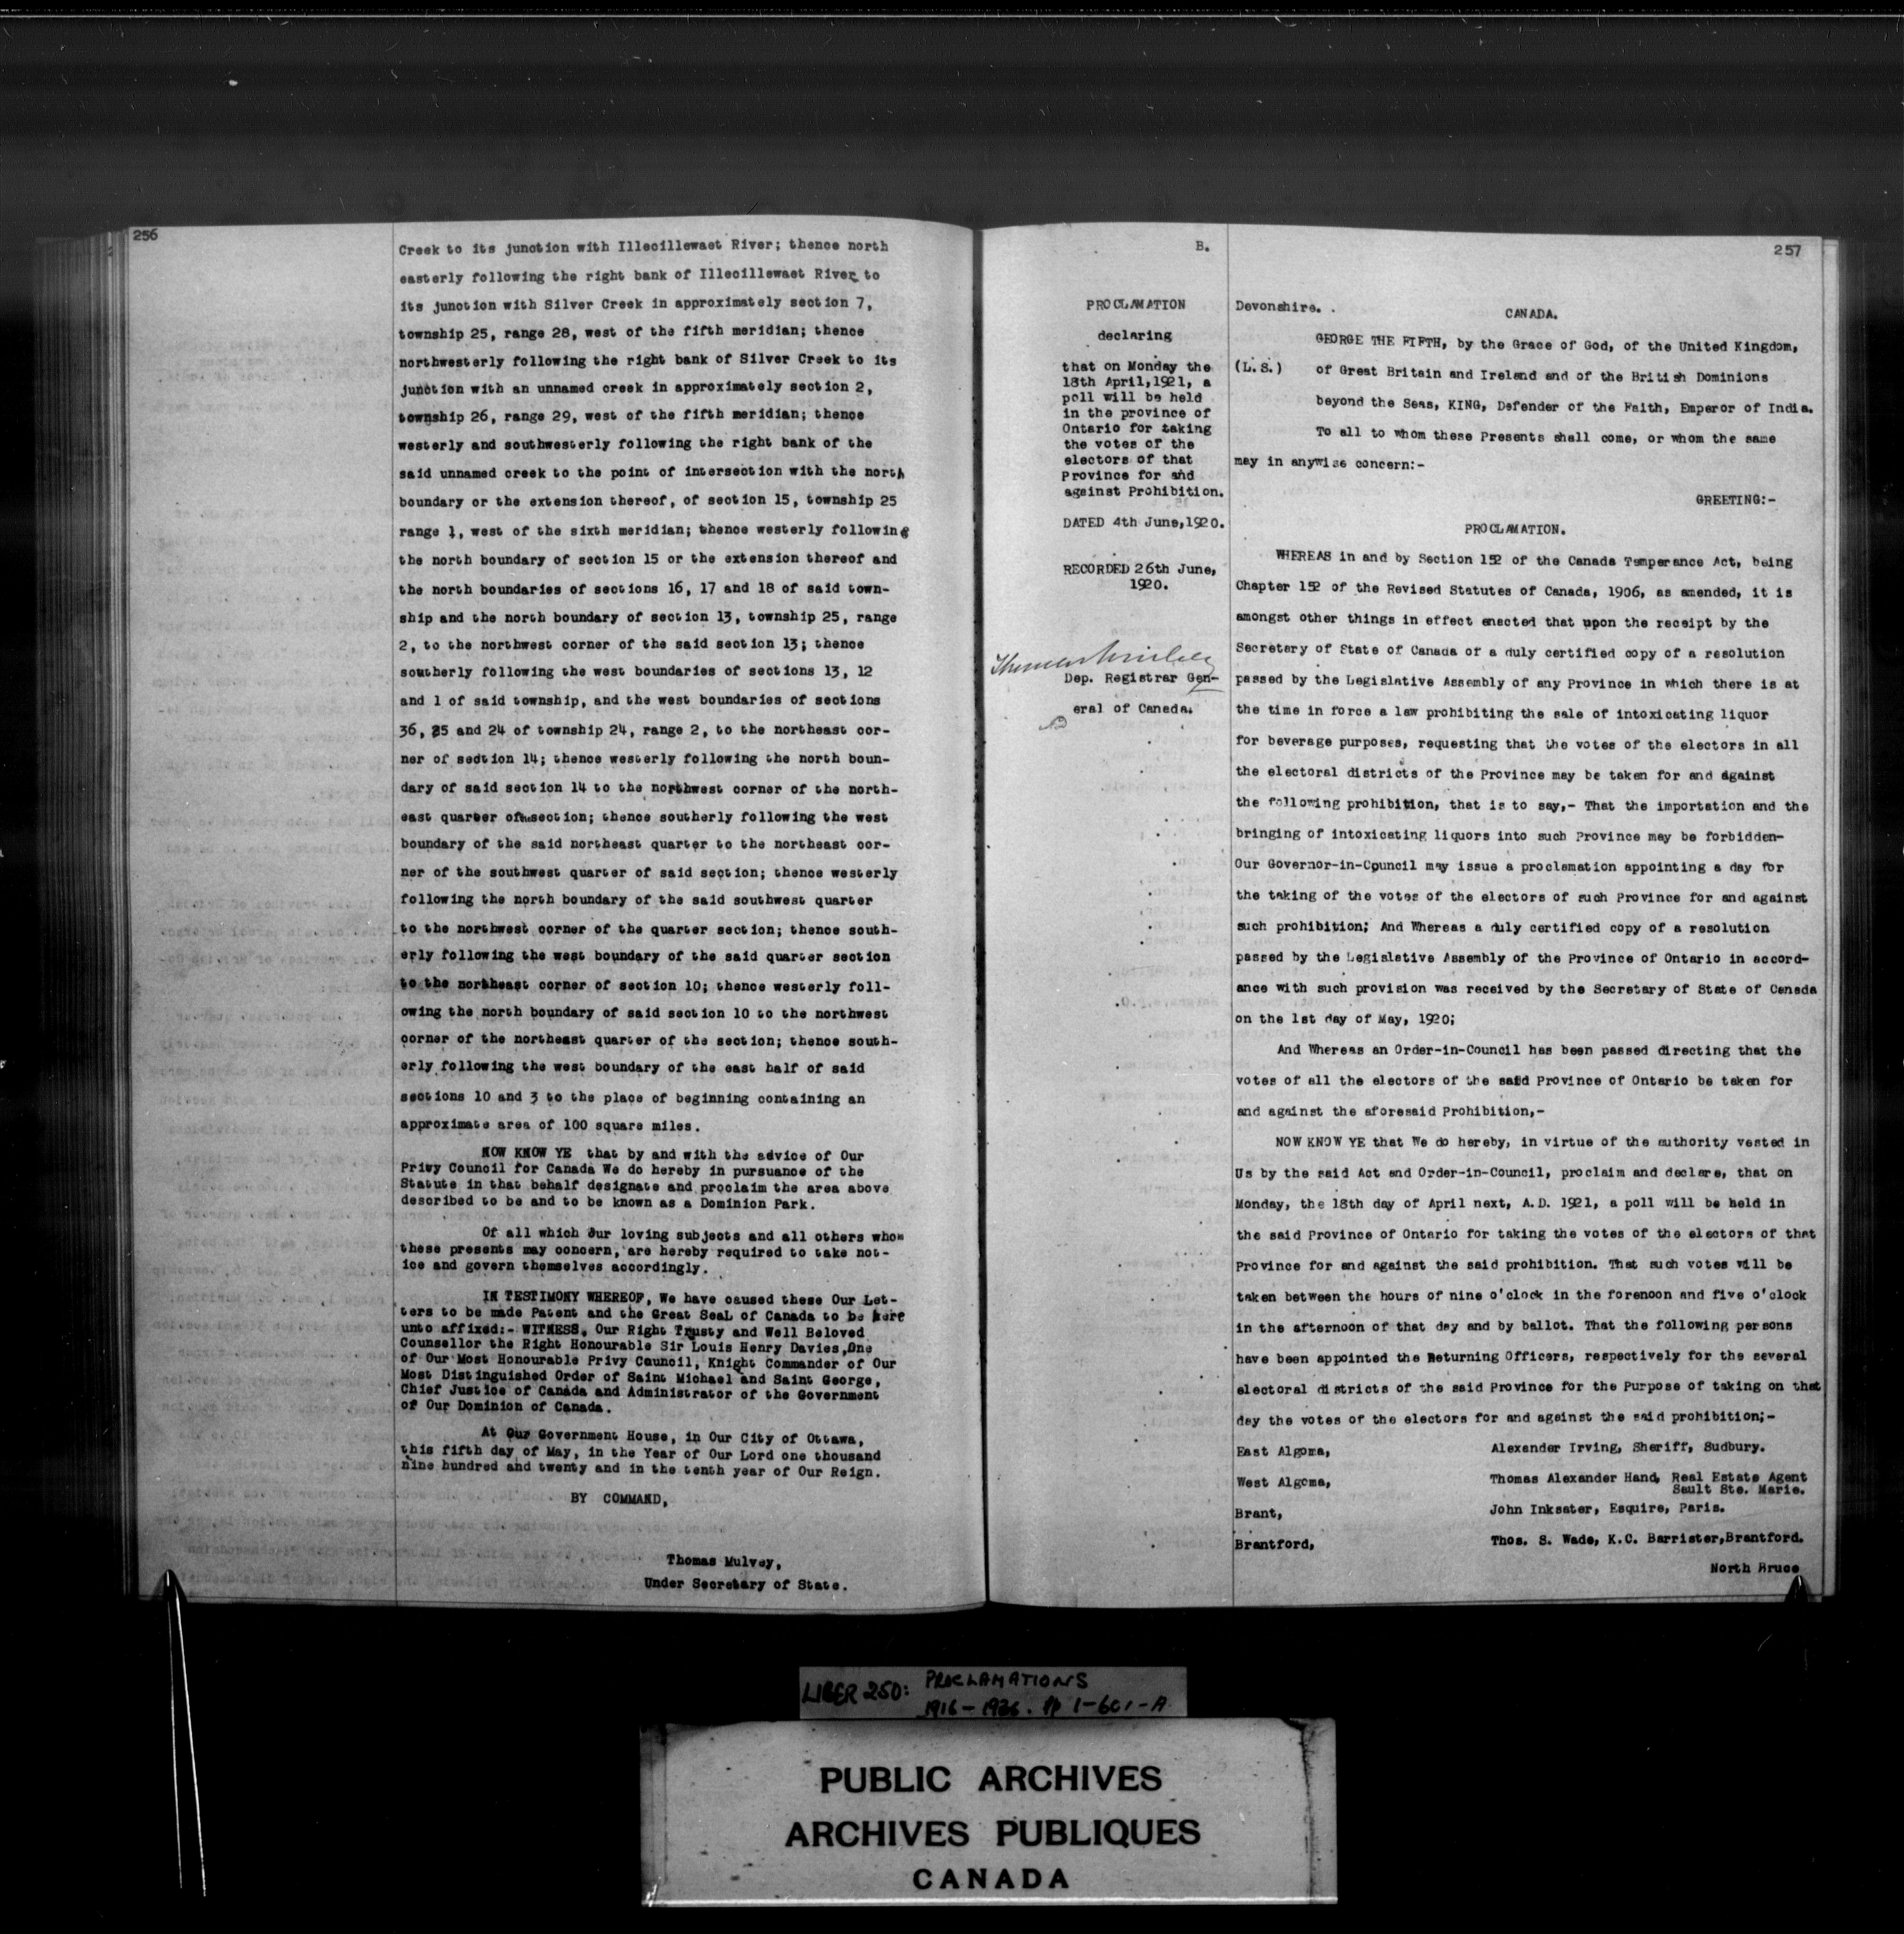 256
Creek to its junction with Illecillewaet River; thence north
easterly following the right bank of Illecillewaet River to
its junction with Silver Creek in approximately section 7,
township 25, range 28, west of the fifth meridian; thence
northwesterly following the right bank of Silver Creek to its
junction with an unnamed creek in approximately section 2,
township 26, range 29, west of the fifth meridian; thence
westerly and southwesterly following the right bank of the
said unnamed creek to the point of intersection with the north
boundary or the extension thereof, of section 15, township 25
range 1, west of the sixth meridian; thence westerly following
the north boundary of section 15 or the extension thereof and
the north boundaries of sections 16, 17 and 18 of said town-
ship and the north boundary of section 13, township 25, range
2, to the northwest corner of the said section 13; thence
southerly following the west boundaries of sections 13, 12
and 1 of said township, and the west boundaries of sections
36, 25 and 24 of township 24, range 2, to the northeast cor-
ner of section 14; thence westerly following the north boun-
dary of said section 14 to the northwest corner of the north-
east quarter of the section; thence southerly following the west
boundary of the said northeast quarter to the northeast cor-
ner of the southwest quarter of said section; thence westerly
following the north boundary of the said southwest quarter
to the northwest corner of the quarter section; thence south-
erly following the west boundary of the said quarter section
to the northeast corner of section 10; thence westerly foll-
owing the north boundary of said section 10 to the northwest
corner of the northeast quarter of the section; thence south-
erly following the west boundary of the east half of said
sections 10 and 3 to the place of beginning containing an
approximate area of 100 square miles.
NOW KNOW YE that by and with the advice of Our
Privy Council for Canada We do hereby in pursuance of the
Statute in that behalf designate and proclaim the area above
described to be and to be known as a Dominion Park.
Of all which Our loving subjects and all others whom
these presents may concern, are hereby required to take not-
ice and govern themselves accordingly.
IN TESTIMONY WHEREOF, We have caused these Our Let-
ters to be made Patent and the Great SeaL of Canada to be here
unto affixed:- WITNESS, Our Right Trusty and Well Beloved
Counsellor the Right Honourable Sir Louis Henry Davies,One
of Our Most Honourable Privy Council, Knight Commander of Our
Most Distinguished Order of Saint Michael and Saint George,
Chief Justice of Canada and Administrator of the Government
of Our Dominion of Canada.
At Our Government House, in Our City of Ottawa,
this fifth day of May, in the Year of Our Lord one thousand
nine hundred and twenty and in the tenth year of Our Reign.
BY COMMAND,
Thomas Mulvey,
Under Secretary of State.
B.
257
PROCLAMATION
declaring
that on Monday the
18th April,1921, a
poll will be held
in the province of
Ontario for taking
the votes of the
electors of that
Province for and
against Prohibition.
DATED 4th June,1920.
RECORDED 26th June,
1920.
Thomas Mulvey
Dep. Registrar Gen-
eral of Canada.
Devonshire. .
CANADA.
GEORGE THE FIFTH, by the Grace of God, of the United Kingdom,
(L.S.) of Great Britain and Ireland and of the British Dominions
beyond the Seas, KING, Defender of the Faith, Emperor of India.
To all to whom these Presents shall come, or whom the same
may in anywise concern:-
GREETING:-
PROCLAMATION.
WHEREAS in and by Section 152 of the Canada Temperance Act, being
Chapter 152 of the Revised Statutes of Canada, 1906, as amended, it is
amongst other things in effect enacted that upon the receipt by the
Secretary of State of Canada of a duly certified copy of a resolution
passed by the Legislative Assembly of any Province in which there is at
the time in force a law prohibiting the sale of intoxicating liquor
for beverage purposes, requesting that the votes of the electors in all
the electoral districts of the Province may be taken for and against
the following prohibition, that is to say,- That the importation and the
bringing of intoxicating liquors into such Province may be forbidden-
Our Governor-in-Council may issue a proclamation appointing a day for
the taking of the votes of the electors of such Province for and against
such prohibition; And Whereas a duly certified copy of a resolution
passed by the Legislative Assembly of the Province of Ontario in accord-
ance with such provision was received by the Secretary of State of Canada
on the 1st day of May, 1920;
And Whereas an Order-in-Council has been passed directing that the
votes of all the electors of the said Province of Ontario be taken for
and against the aforesaid Prohibition,-
NOW KNOW YE that We do hereby, in virtue of the authority vested in
Us by the said Act and Order-in-Council, proclaim and declare, that on
Monday, the 18th day of April next, A.D. 1921, a poll will be held in
the said Province of Ontario for taking the votes of the electors of that
Province for and against the said prohibition. That such votes will be
taken between the hours of nine o'clock in the forenoon and five o'clock
in the afternoon of that day and by ballot. That the following persons
have been appointed the Returning Officers, respectively for the several
electoral districts of the said Province for the Purpose of taking on that
day the votes of the electors for and against the said prohibition;-
East Algoma, Alexander Irving, Sheriff, Sudbury.
West Algoma, Thomas Alexander Hand, Real Estate Agent
Sault Ste. Marie.
Brant, John Inksater, Esquire, Paris.
Brantford, Thos. S. Wade, K.C. Barrister,Brantford.
North Bruce
LIBER 250: PROCLAMATIONS
1916-1926. pp 1-601-A
PUBLIC ARCHIVES
ARCHIVES PUBLIQUES
CANADA